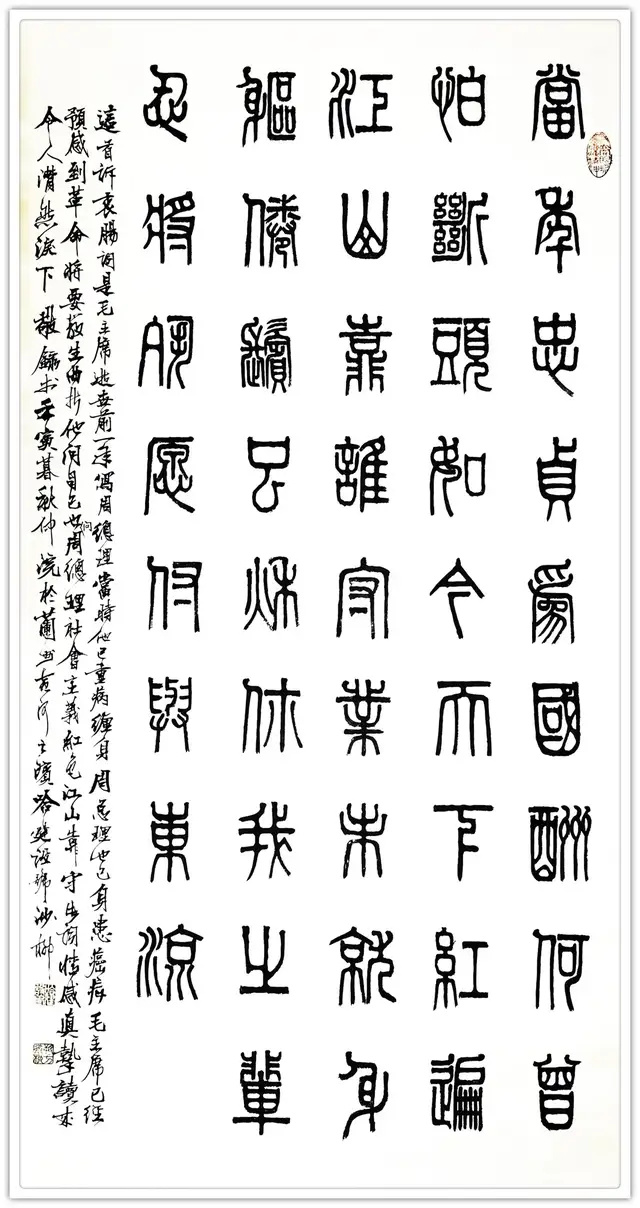 當年忠貞爲國酬何曾
怕斷頭如今天下紅遍
江山靠誰守業未就身
軀倦鬢已秋你我之輩
忍將夙愿付與東流
這首訴衷腸詞是毛主席逝世前一年寫周總理當時他已重病纏身周总理也已身患癌病毛主席已經
預感到革命將要發生曲折他問自己也問周總理社會主義紅色江山靠守情感真摯讀來
令人潸然淚下敬錄於壬寅暮秋仲浣於河之濱沙柳